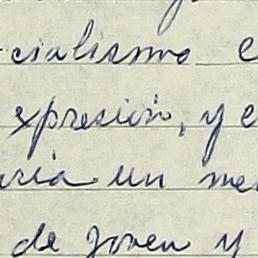 cialismo e
expresión, y e
aria un me
de joven y